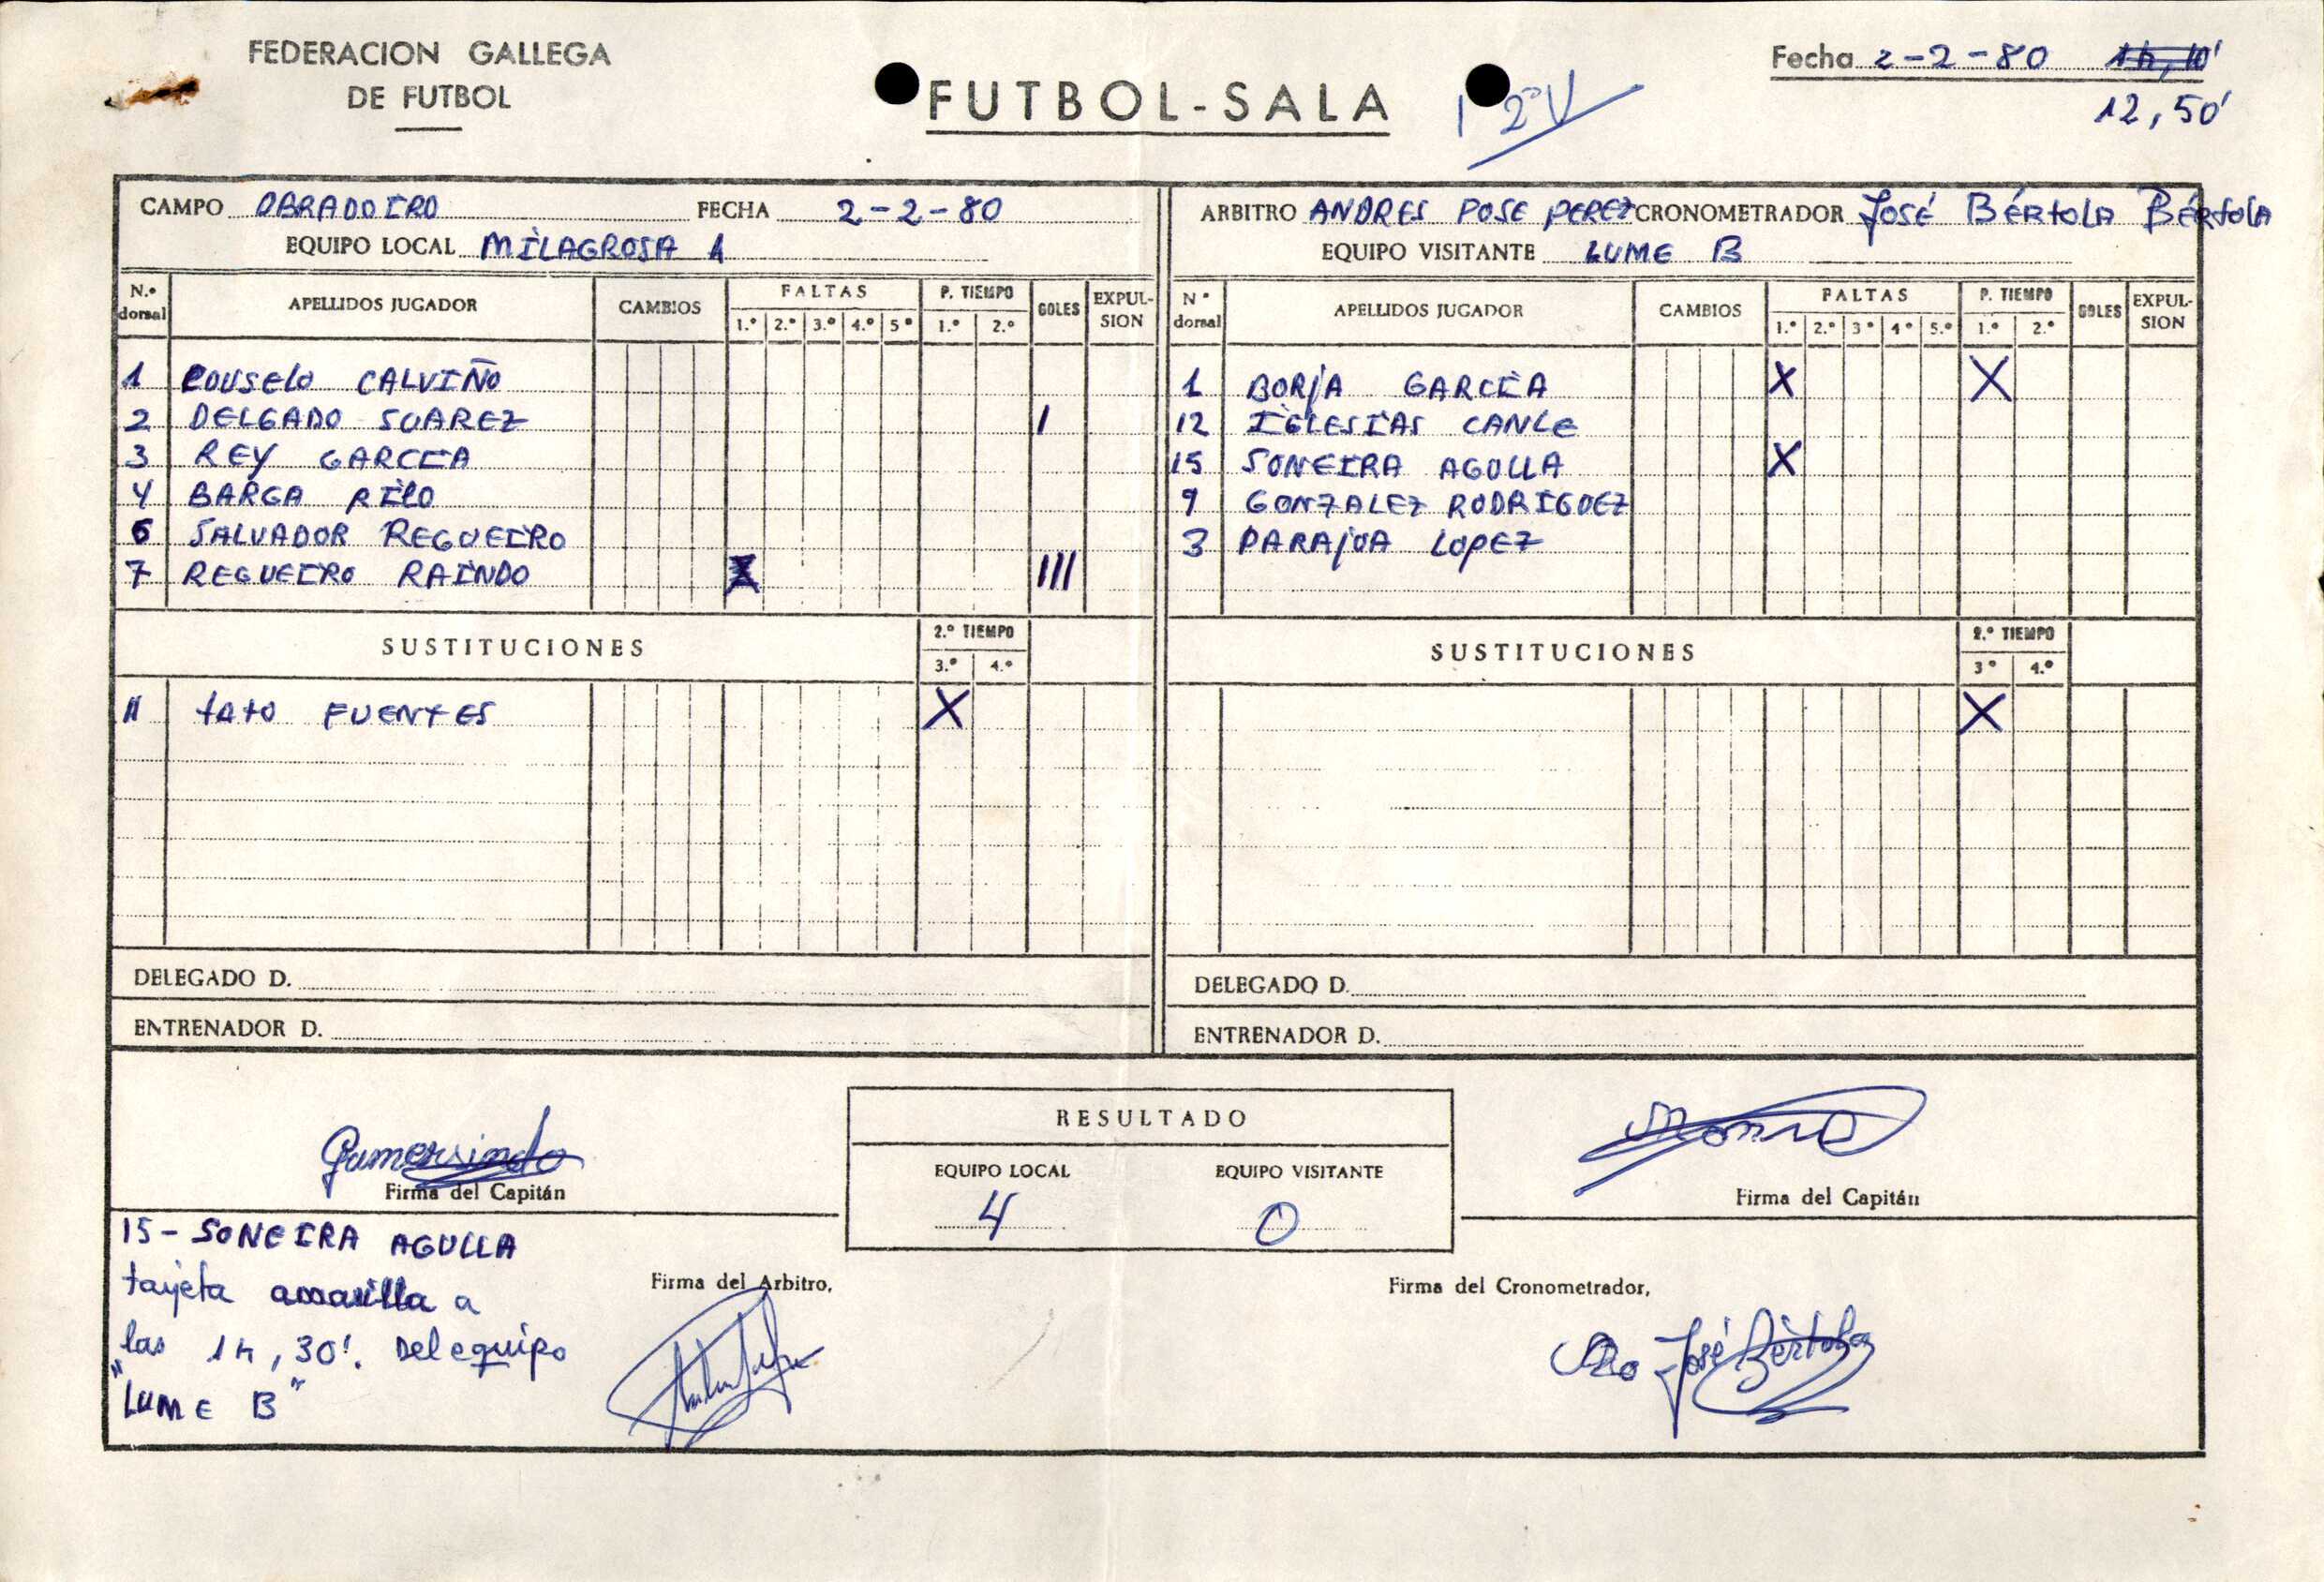 FEDERACION GALLEGA
DE FUTBOL
FUTBOL-SALA
Fecha 2-2-80
12,50'
CAMPO OBRADOIRO FECHA 2-2-80
EQUIPO LOCAL MILAGROSA 1
ARBITRO ANDRES POSE PEREZ CRONOMETRADOR José Bértola Bértola
EQUIPO VISITANTE LUME B
N.º dorsal APELLIDOS JUGADOR CAMBIOS FALTAS 1.º 2.º 3.º 4.º 5º P. TIEMPO 1.º 2.º GOLES EXPULSION
1 COUSELO CALVIÑO
2 DELGADO SUAREZ I
3 REY GARCIA
4 BARGA RILO
6 SALVADOR REGUEIRO
7 REGUEIRO RAINDO X III
SUSTITUCIONES 2.º TIEMPO 3.º 4.º
11 TATO FUENTES X
DELEGADO D.
ENTRENADOR D.
Nº dorsal APELLIDOS JUGADOR CAMBIOS FALTAS 1.º 2.º 3º 4º 5.º P. TIEMPO 1.º 2.º GOLES EXPULSION
1 BORJA GARCIA X X
12 IGLESIAS CANLE
15 SONEIRA AGULLA X
9 GONZALEZ RODRIGUEZ
3 PARAJUA LOPEZ
SUSTITUCIONES 2.º TIEMPO 3º 4.º
X
DELEGADO D.
ENTRENADOR D.
Gumersindo
Firma del Capitán
RESULTADO
EQUIPO LOCAL EQUIPO VISITANTE
4 0
Firma del Capitán
15- SONEIRA AGULLA
tarjeta amarilla a
las 1h, 30'. Del equipo
"LUME B"
Firma del Arbitro,
Firma del Cronometrador,
José Bértola